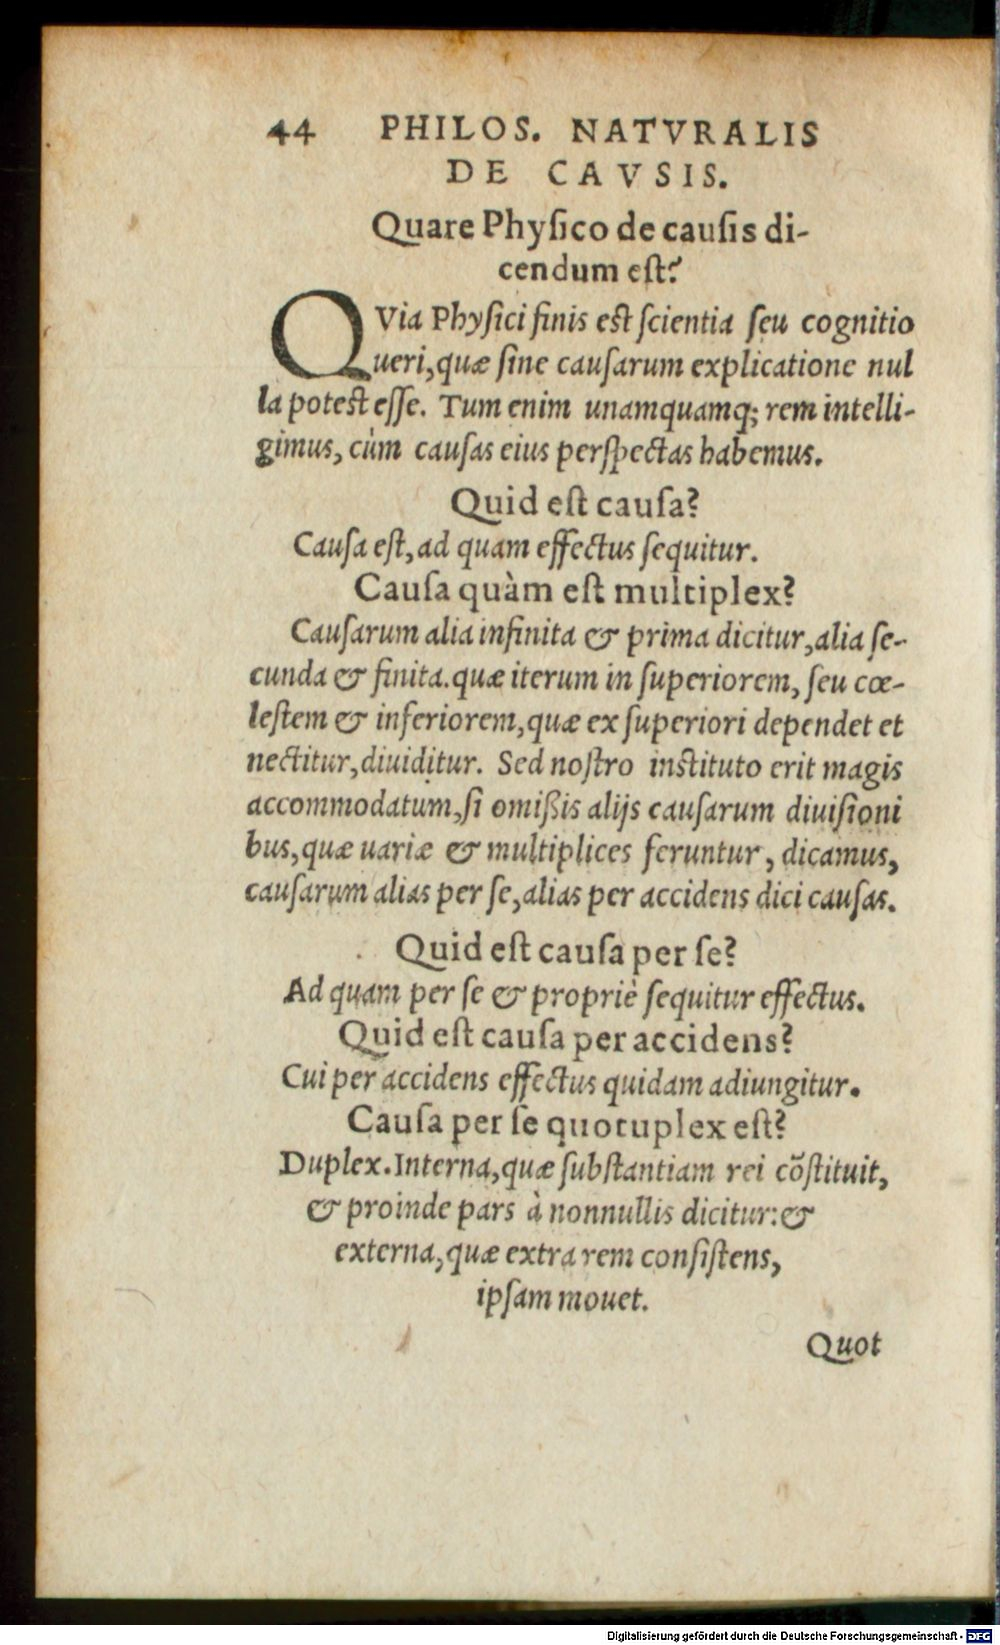 44 PHILOS. NATVRALIS
DE CAVSIS.
Quare Phyſico de cauſis di-
cendum eſt?
QVia Phyſici finis est ſcientia ſeu cognitio
ueri, quæ ſine cauſarum explicatione nul
la potest eſſe. Tum enim unamquamq; rem intelli-
gimus, cùm cauſas eius perſpectas habemus.
Quid eſt cauſa?
Cauſa eſt, ad quam effectus ſequitur.
Cauſa quàm eſt multiplex?
Cauſarum alia infinita & prima dicitur, alia ſe-
cunda & finita. quæ iterum in ſuperiorem, ſeu cœ-
leſtem & inferiorem, quæ ex ſuperiori dependet et
nectitur, diuiditur. Sed noſtro instituto erit magis
accommodatum, ſi omißis alijs cauſarum diuiſioni
bus, quæ uariæ & multiplices feruntur, dicamus,
cauſarum alias per ſe, alias per accidens dici cauſas.
Quid eſt cauſa per ſe?
Ad quam per ſe & propriè ſequitur effectus.
Quid eſt cauſa per accidens?
Cui per accidens effectus quidam adiungitur.
Cauſa per ſe quotuplex eſt?
Duplex. Interna, quæ ſubſtantiam rei cõſtituit,
& proinde pars à nonnullis dicitur: &
externa, quæ extra rem conſiſtens,
ipſam mouet.
Quot
Digitalisierung gefördert durch die Deutsche Forschungsgemeinschaft - DFG